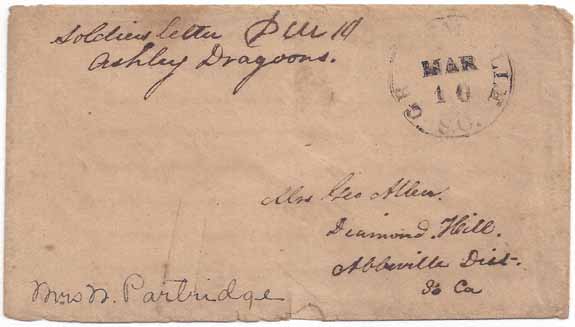 Soldiers letter Due 10
Ashley Dragoons.
MAR
10
S.C.
Mrs Geo Allen.
Diamond Hill.
Abbeville Dist.
So Ca
Mrs N. Partridge